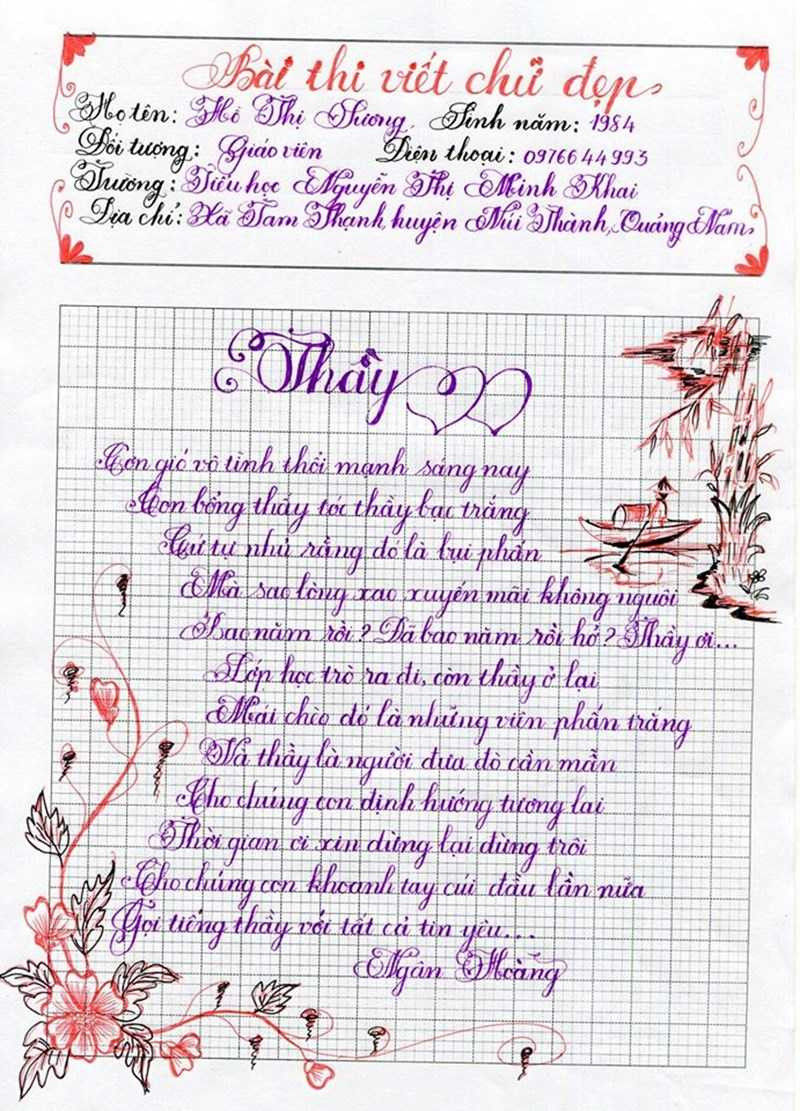 Bài thi viết chữ đẹp
Họ tên: Hồ Thị Sương Sinh năm: 1984
Đối tượng: Giáo viên Điện thoại: 0976644993
Trường: Tiểu học Nguyễn Thị Minh Khai
Địa chỉ: Xã Tam Thạnh, huyện Núi Thành, Quảng Nam
Thầy
Cơn gió vô tình thổi mạnh sáng nay
Con bổng thấy tóc thầy bạc trắng
Cứ tự nhủ rằng đó là bụi phấn
Mà sao lòng xao xuyến mãi không nguôi
Bao năm rồi? Đã bao năm rồi hở? Thầy ơi...
Lớp học trò ra đi, còn thầy ở lại
Mái chèo đó là những viên phấn trắng
Và thầy là người đưa đò cần mẫn
Cho chúng con định hướng tương lai
Thời gian ơi xin dừng lại đừng trôi
Cho chúng con khoanh tay cúi đầu lần nữa
Gọi tiếng thầy với tất cả tin yêu...
Ngân Hoàng